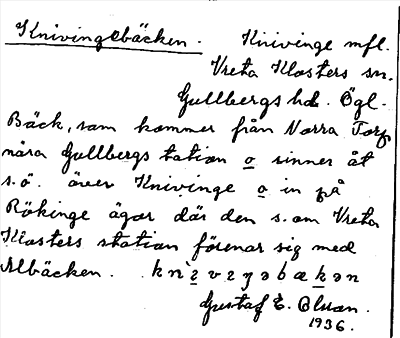 Knivingebäcken. Knivinge mfl.
Vreta Klosters sn.
Gullbergs hd. Ögl.
Bäck, som kommer från Norra Torp
nära Gullbergs station o rinner åt
s.ö. över Knivinge o in på
Rökinge ägor där den s. om Vreta
Klosters station förenar sig med
Albäcken.
Gustaf E. Olson.
1936.